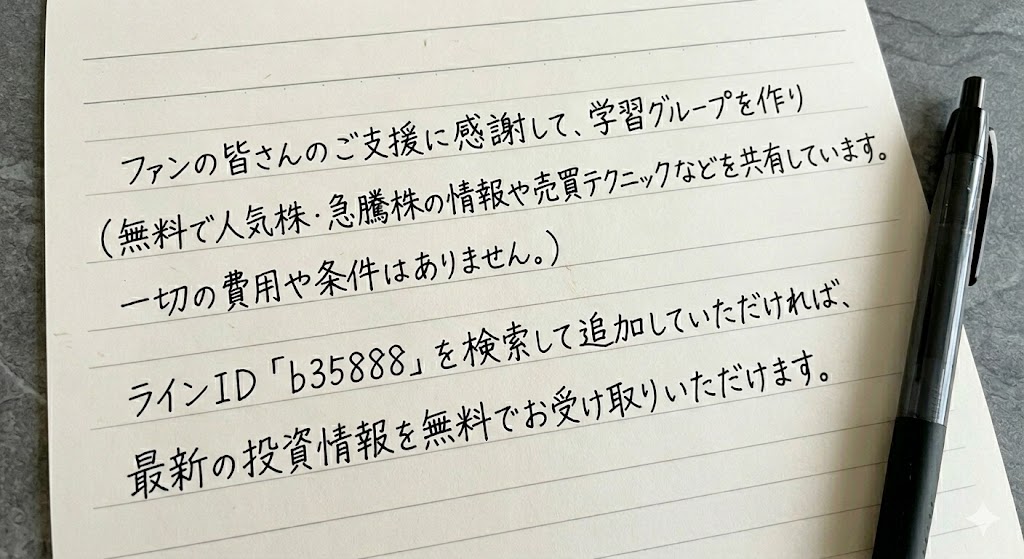 ファンの皆さんのご支援に感謝して、学習グループを作り
（無料で人気株・急騰株の情報や売買テクニックなどを共有しています。
一切の費用や条件はありません。）
ラインID「b35888」を検索して追加していただければ、
最新の投資情報を無料でお受け取りいただけます。